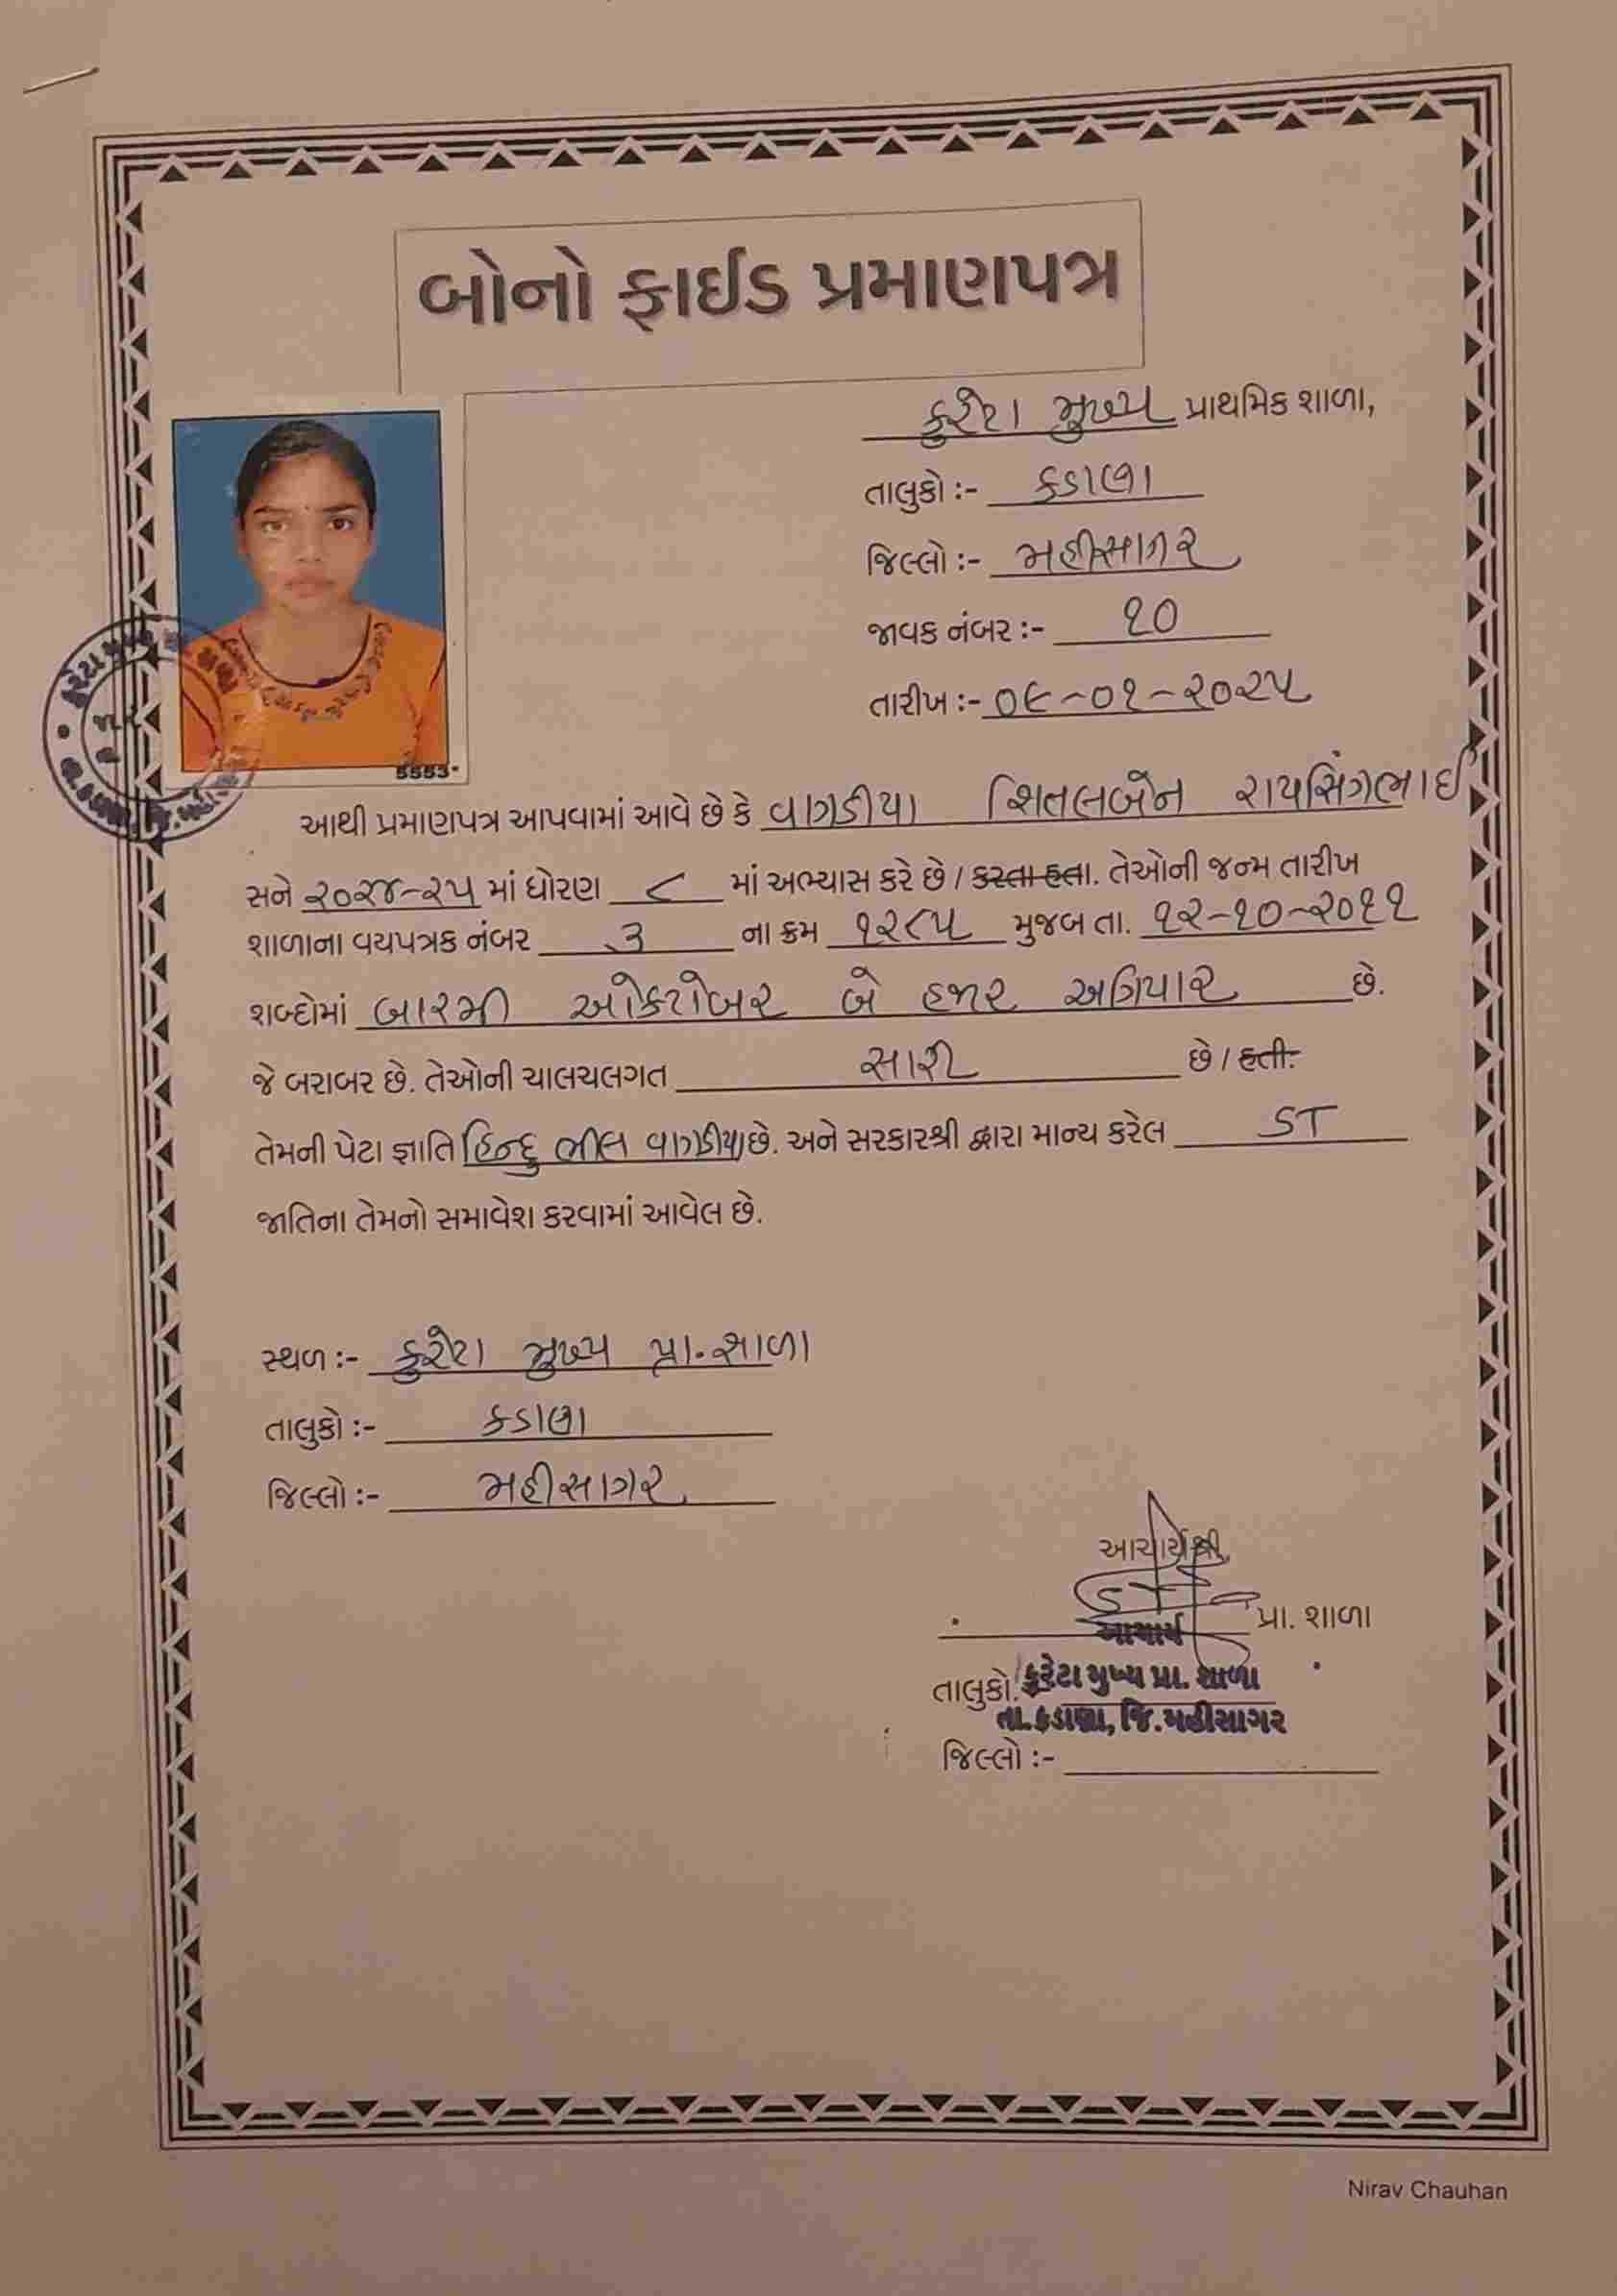 બોનો ફાઈડ પ્રમાણપત્ર
કુરેટા મુખ્ય પ્રાથમિક શાળા,
તાલુકો :- કડાણા
જિલ્લો :- મહીસાગર
જાવક નંબર :- ૧૦
તારીખ :- ૦૯-૦૧-૨૦૨૫
5553
આથી પ્રમાણપત્ર આપવામાં આવે છે કે વાગડીયા શિતલબેન રાયસિંગભાઈ
સને ૨૦૨૪-૨૫ માં ધોરણ ૮ માં અભ્યાસ કરે છે / કરતા હતા. તેઓની જન્મ તારીખ
શાળાના વયપત્રક નંબર ૩ ના ક્રમ ૧૨૮૫ મુજબ તા. ૧૨-૧૦-૨૦૧૧
શબ્દોમાં બારમી ઓકટોબર બે હજાર અગિયાર છે.
જે બરાબર છે. તેઓની ચાલચલગત સારી છે / હતી.
તેમની પેટા જ્ઞાતિ હિન્દુ ભીલ વાગડીયા છે. અને સરકારશ્રી દ્વારા માન્ય કરેલ ST
જાતિના તેમનો સમાવેશ કરવામાં આવેલ છે.
સ્થળ :- કુરેટા મુખ્ય પ્રા. શાળા
તાલુકો :- કડાણા
જિલ્લો :- મહીસાગર
આચાર્યશ્રી,
આચાર્ય પ્રા. શાળા
તાલુકો. કુરેટા મુખ્ય પ્રા. શાળા
તા.કડાણા, જિ.મહીસાગર
જિલ્લો :-
Nirav Chauhan